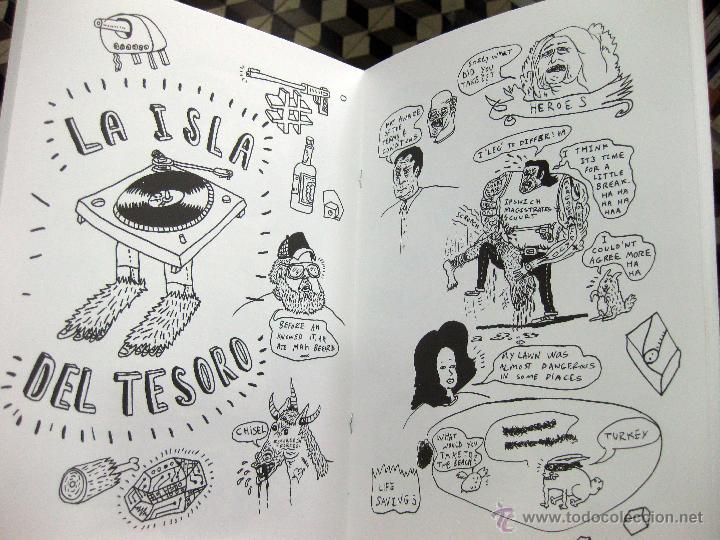 LA ISLA
DEL TESORO
BEFORE AH
KNOWED IT, AH
ATE MAH BEERD
CHISEL
SORRY WHAT
DID YOU
HEROES
TERMS &
I LEG' TO DIFFER! HA
I THINK
IT'S TIME
FOR A
LITTLE
BREAK
HA HA
HA HA
HAA
IPSWICH
MAGISTRATES
COURT
I
COULD'NT
AGREE MORE
HA
HA
MY LAWN WAS
ALMOST DANGEROUS
IN SOME PLACES
WHAT
WOULD YOU
TAKE TO
THE BEACH?
TURKEY
LIFE
SAVINGS
© todocoleccion.net